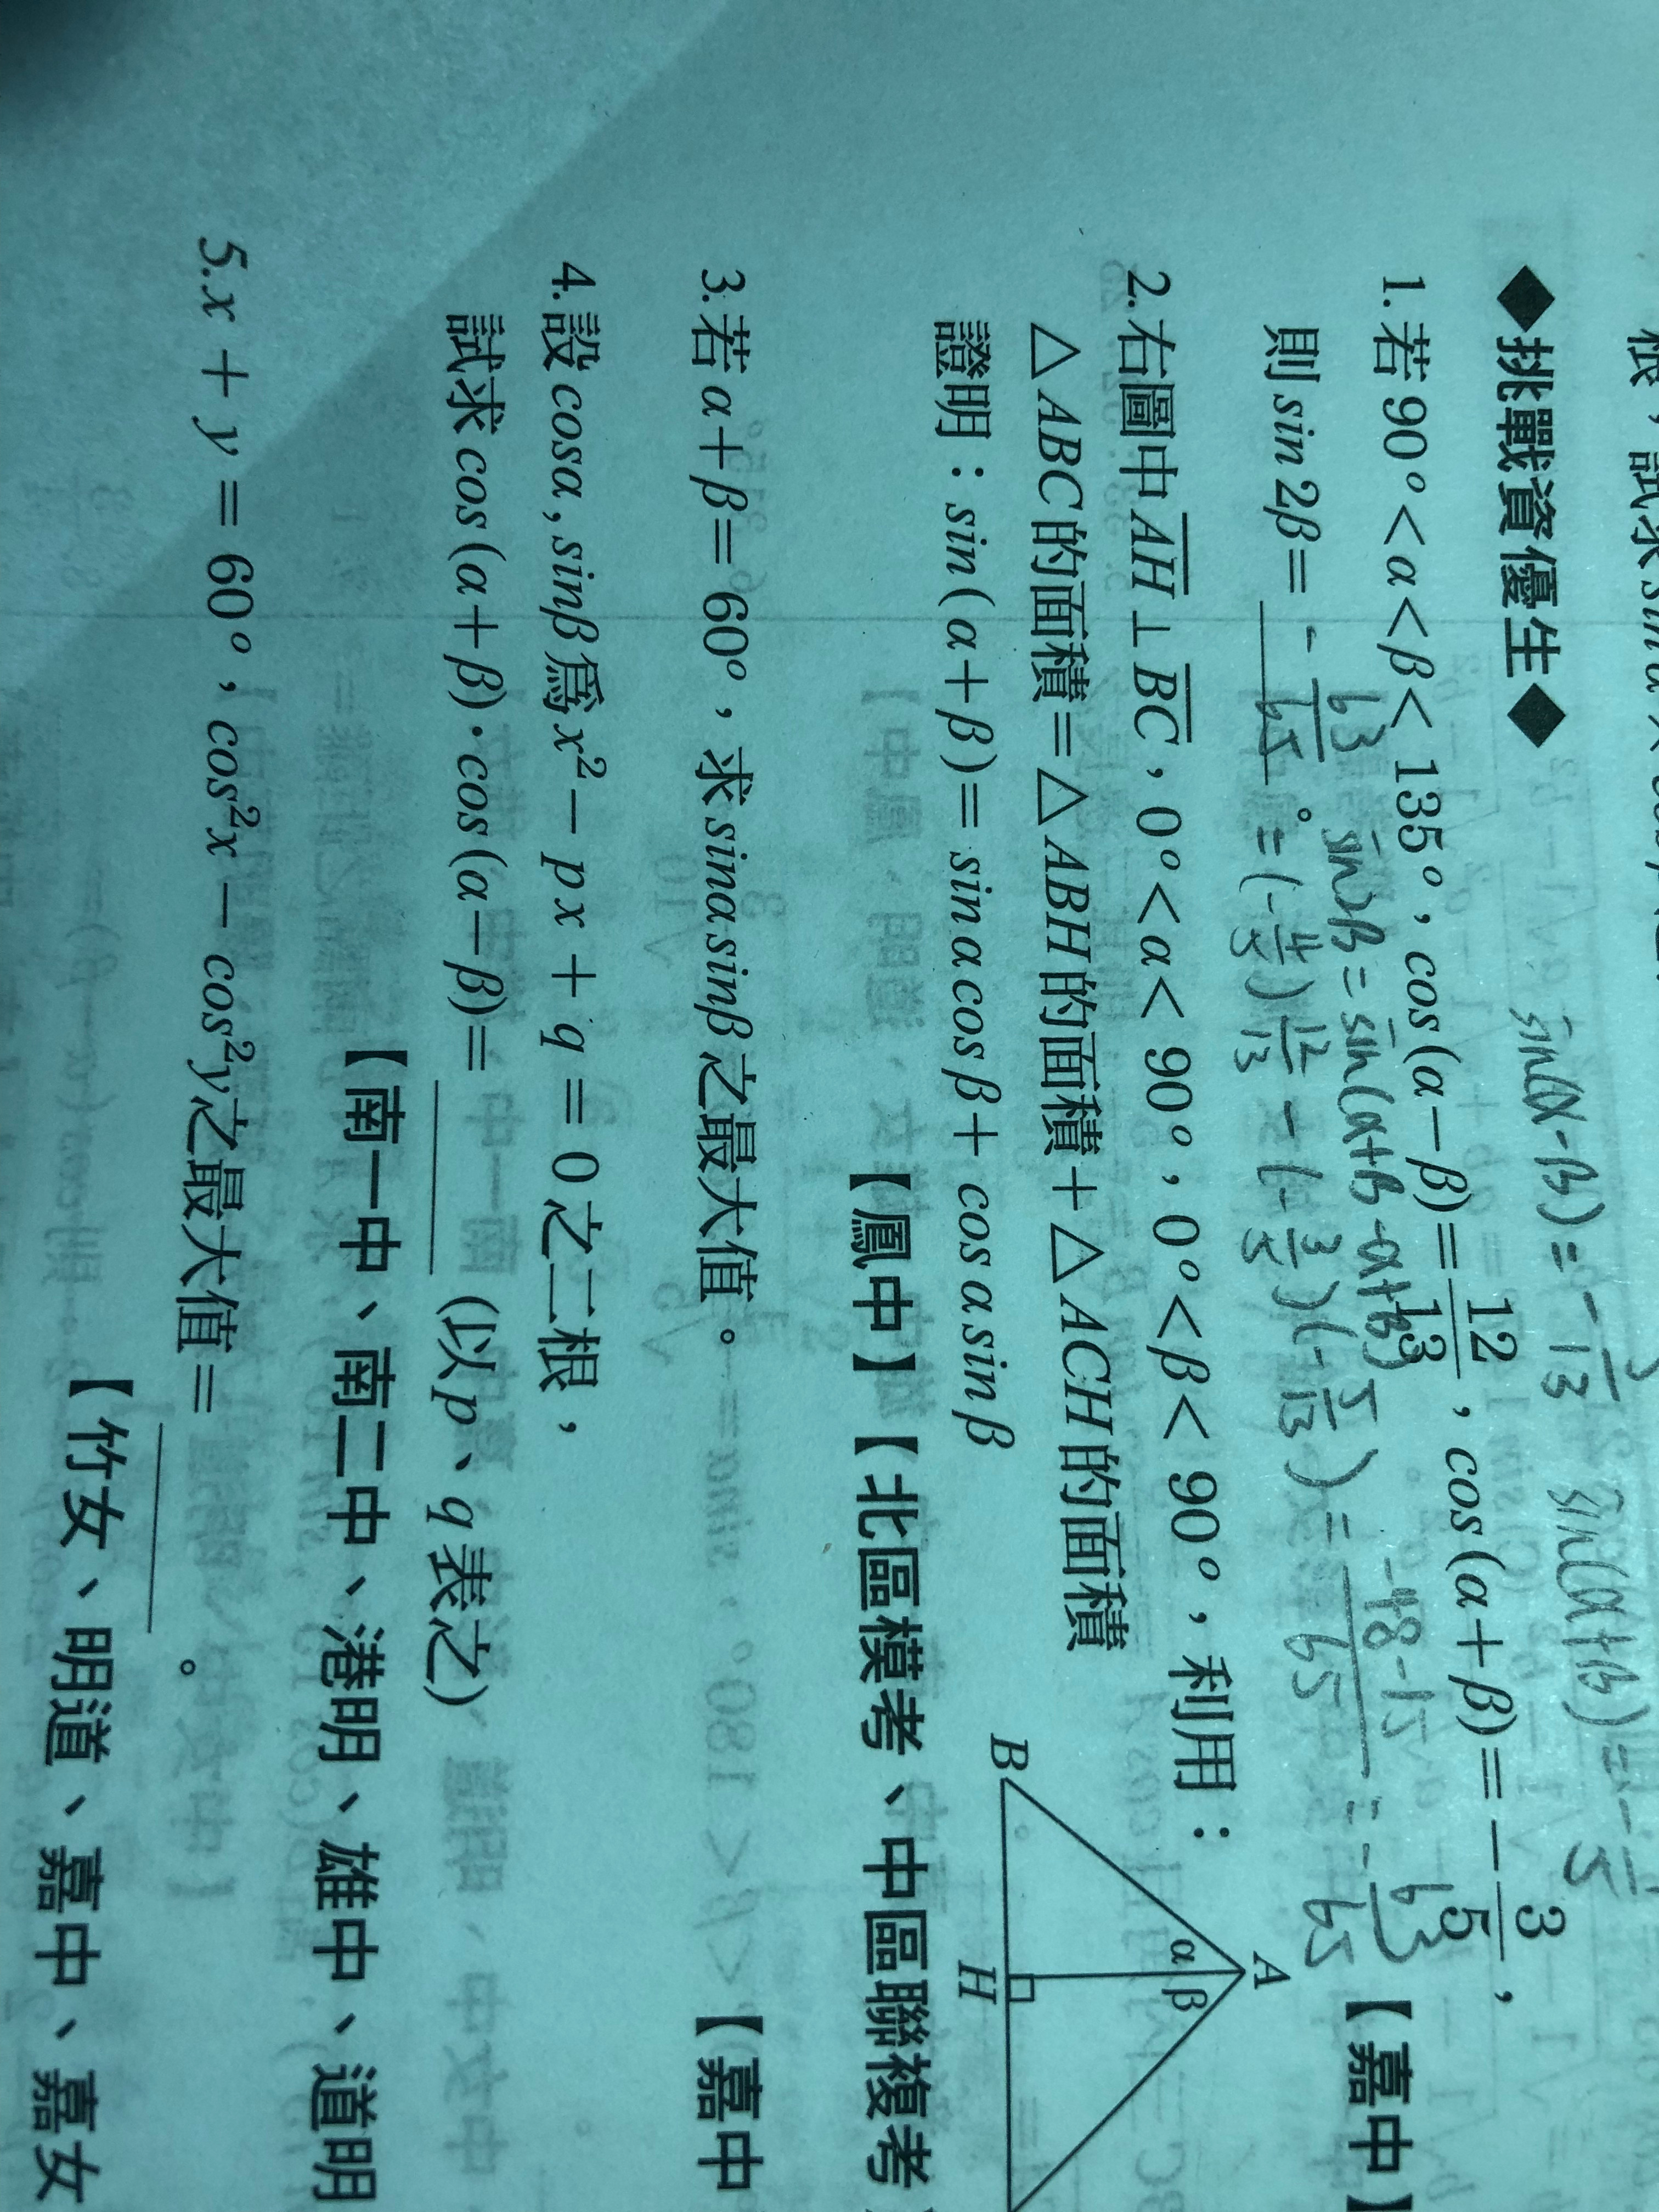 根，試求
◆挑戰資優生◆
sin(α-β)=-5/13 sin(α+β)=-4/5
1.若90°<α<β<135°，cos(α-β)=12/13，cos(α+β)=-3/5，
則sin2β= -63/65 。 【嘉中】
sin2β=sin(α+β-α+β)
=(-4/5)12/13-(-3/5)(-5/13)=-48-15/65=-63/65
2.右圖中AH⊥BC，0°<α<90°，0°<β<90°，利用：
△ABC的面積=△ABH的面積+△ACH的面積
證明：sin(α+β)=sinαcosβ+cosαsinβ
A
α β
B H
【鳳中】【北區模考、中區聯複考
3.若α+β=60°，求sinαsinβ之最大值。 【嘉中
4.設cosα,sinβ爲x²-px+q=0之二根，
試求cos(α+β)·cos(α-β)=____ (以p、q表之)
【南一中、南二中、港明、雄中、道明
5.x+y=60°，cos²x-cos²y之最大值=____。
【竹女、明道、嘉中、嘉女